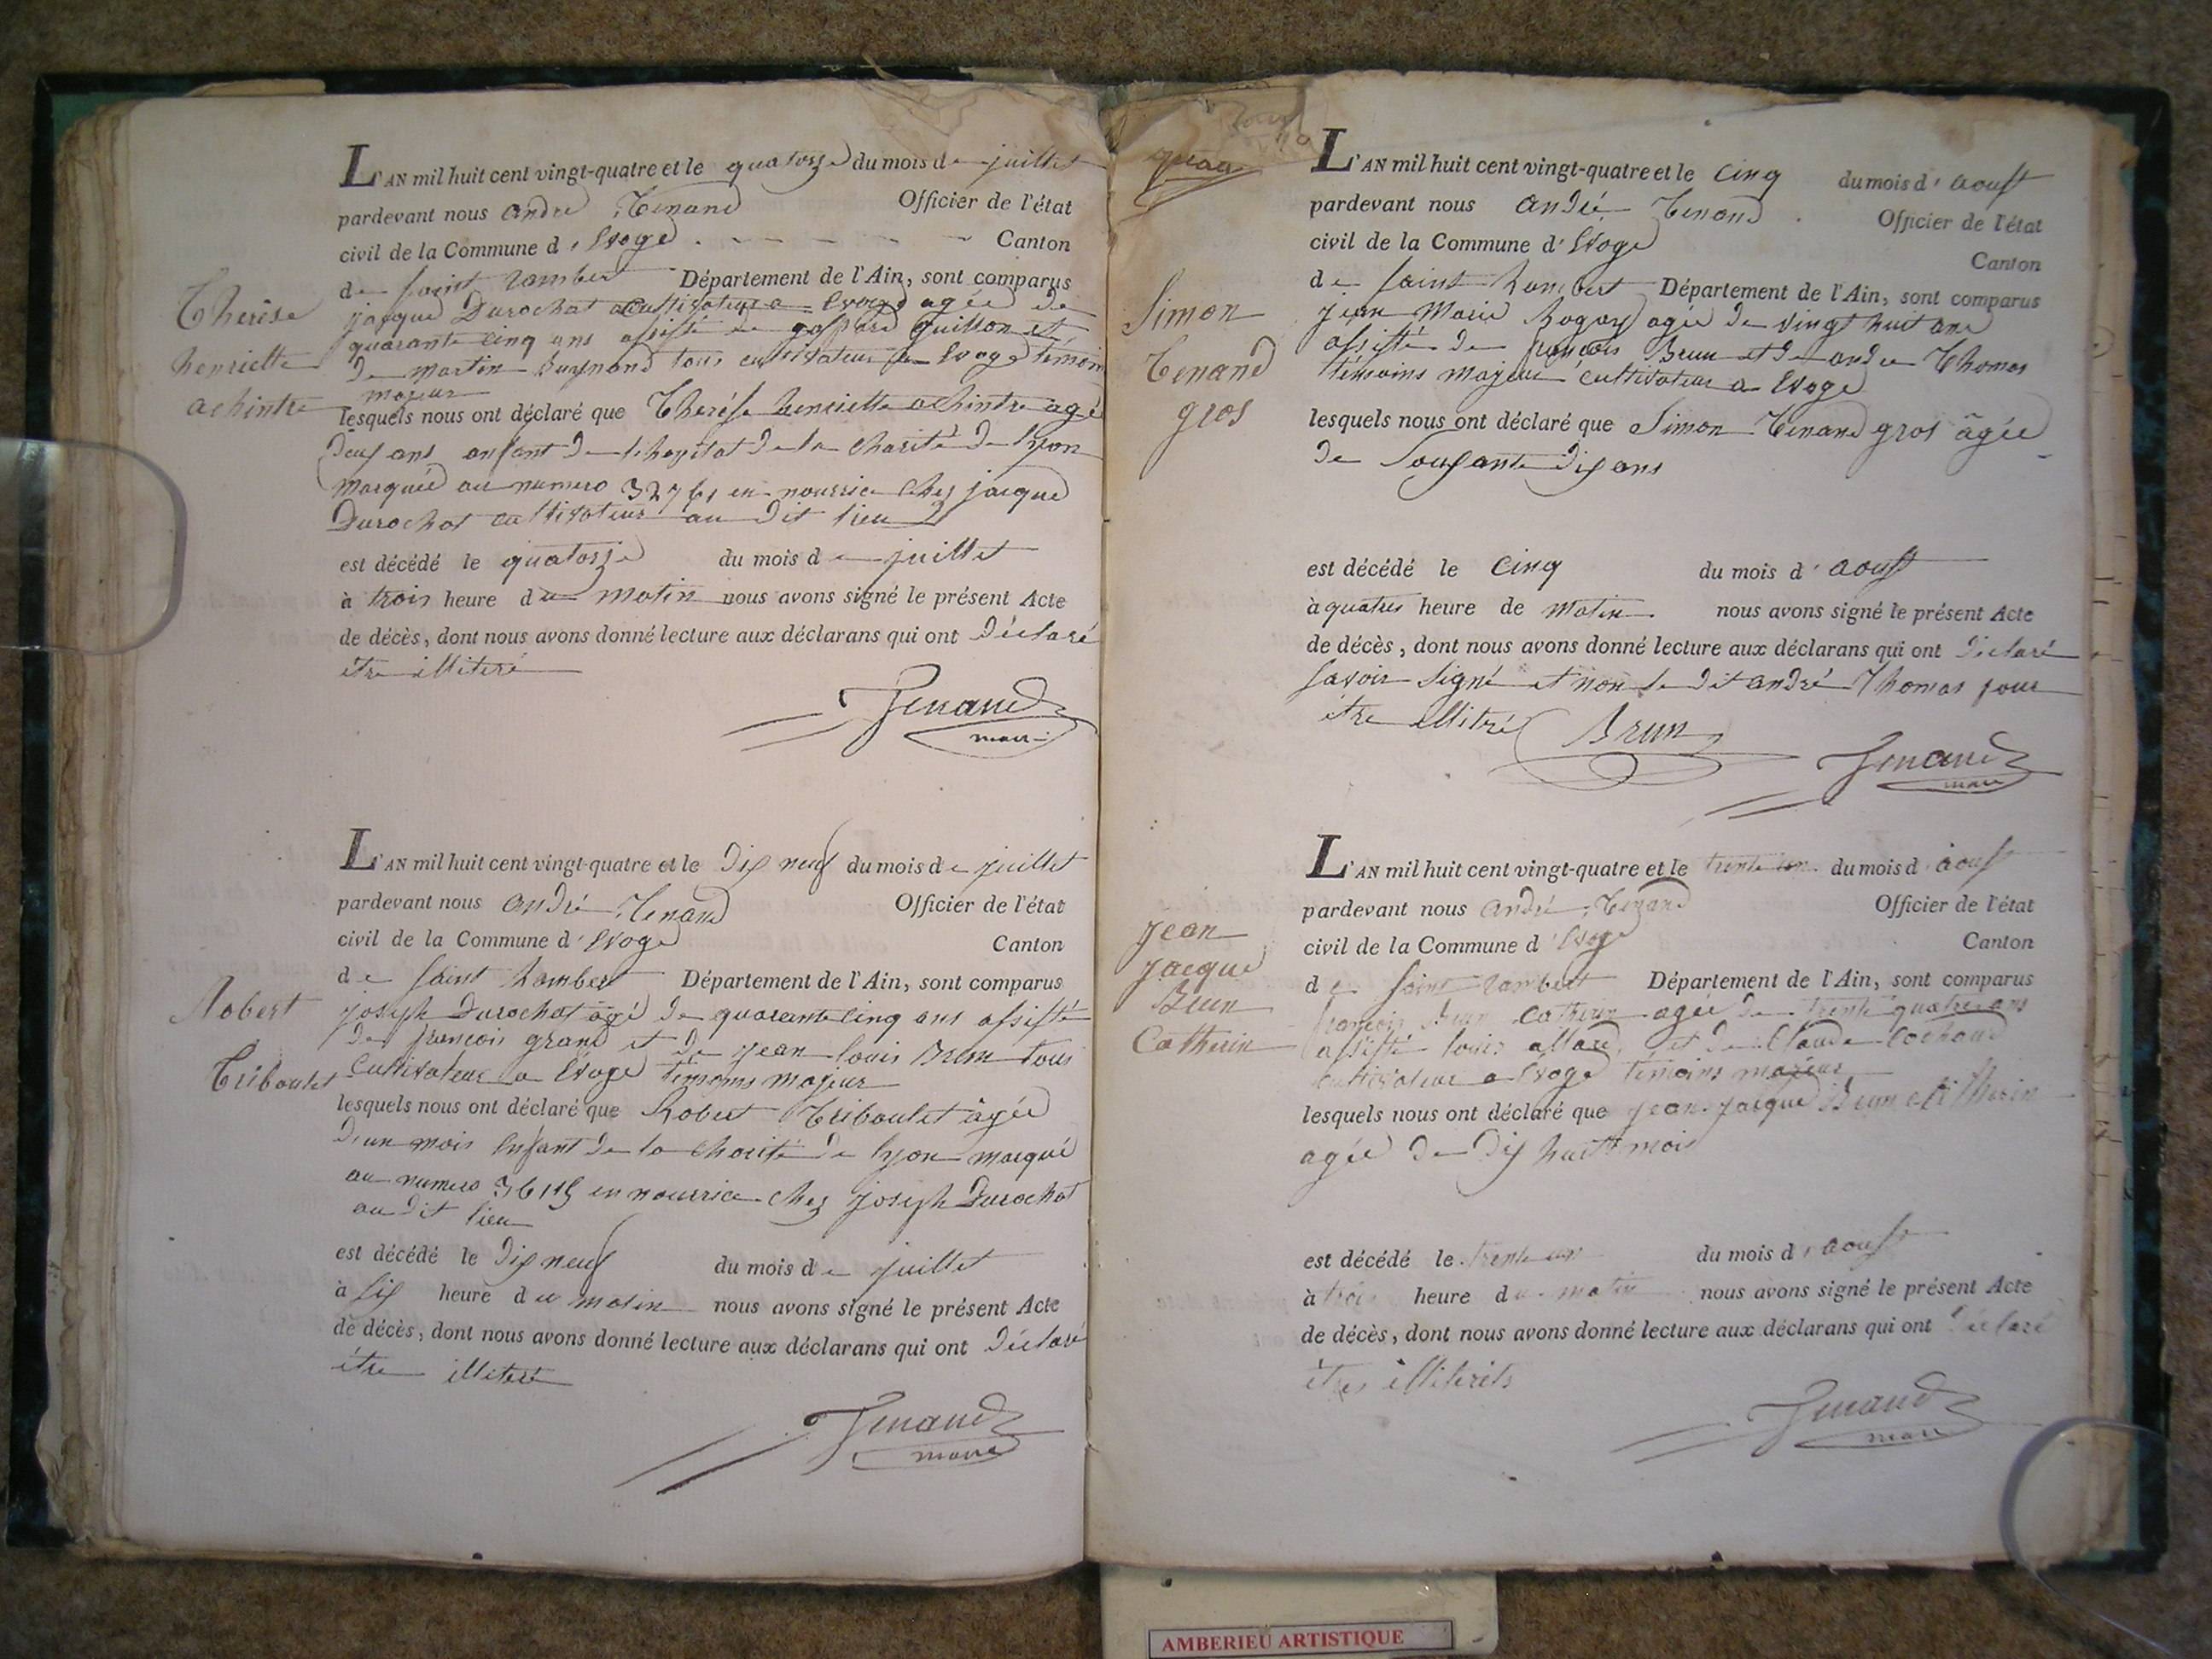 L'AN mil huit cent vingt-quatre et le quatorze du mois de juillet
pardevant nous andré Tenand Officier de l'état
civil de la Commune d'Evoge Canton
de saint rambert Département de l'Ain, sont comparus
jacque Durochat cultivateur a Evoge agée de
quarante cinq ans assisté de gaspard guillon et
de martin Buynand tous cultivateur a Evoge témoin
majeur
lesquels nous ont déclaré que Therése henriette achintre agé
deux ans enfant de l'hopital de la charité de lyon
marquée au numero 32761 en nourrice chez jacque
Durochat cultivateur au dit lieu
est décédé le quatorze du mois de juillet
à trois heure du matin nous avons signé le présent Acte
de décès, dont nous avons donné lecture aux déclarans qui ont déclaré
être illiteré
Tenand
maire
Therése
henriette
achintre
L'AN mil huit cent vingt-quatre et le dix neuf du mois de juillet
pardevant nous andré Tenand Officier de l'état
civil de la Commune d'Evoge Canton
de saint Rambert Département de l'Ain, sont comparus
joseph Durochat agé de quarante cinq ans assisté
de françois grand et de jean louis Brun tous
cultivateur a Evoge temoins majeur
lesquels nous ont déclaré que Robert Triboulet agée
d'un mois enfant de la charité de lyon marqué
au numero 36115 en nourrice chez joseph Durochat
au dit lieu
est décédé le dix neuf du mois de juillet
à six heure du matin nous avons signé le présent Acte
de décès, dont nous avons donné lecture aux déclarans qui ont déclaré
être illiteré
Tenand
maire
Robert
Triboulet
L'AN mil huit cent vingt-quatre et le cinq du mois d'aoust
pardevant nous andré Tenand Officier de l'état
civil de la Commune d'Evoge
Canton
de saint Rambert Département de l'Ain, sont comparus
jean Marie agée de vingt huit ans
assisté de françois Brun et de andré Thomas
témoins majeur cultivateur a Evoge
lesquels nous ont déclaré que Simon Tenand gros âgée
de souxante dix ans
est décédé le cinq du mois d'aoust
à quatres heure de matin nous avons signé le présent Acte
de décès, dont nous avons donné lecture aux déclarans qui ont déclaré
savoir signé et non le dit andré Thomas pour
être illitré
Brun
Tenand
maire
Simon
Tenand
gros
L'AN mil huit cent vingt-quatre et le trente un du mois d'aoust
pardevant nous andré Tenand Officier de l'état
civil de la Commune d'Evoge Canton
de saint rambert Département de l'Ain, sont comparus
françois Brun Catherin agée de trente quatre ans
assisté louis allard et de Claude Cochoud
cultivateur a Evoge temoins majeur
lesquels nous ont déclaré que jean jacque Brun Catherin
agée de dix huit mois
est décédé le trente un du mois d'aoust
à trois heure du matin nous avons signé le présent Acte
de décès, dont nous avons donné lecture aux déclarans qui ont déclaré
êtres illiterés
Tenand
maire
jean
jacque
Brun
Catherin
AMBERIEU ARTISTIQUE